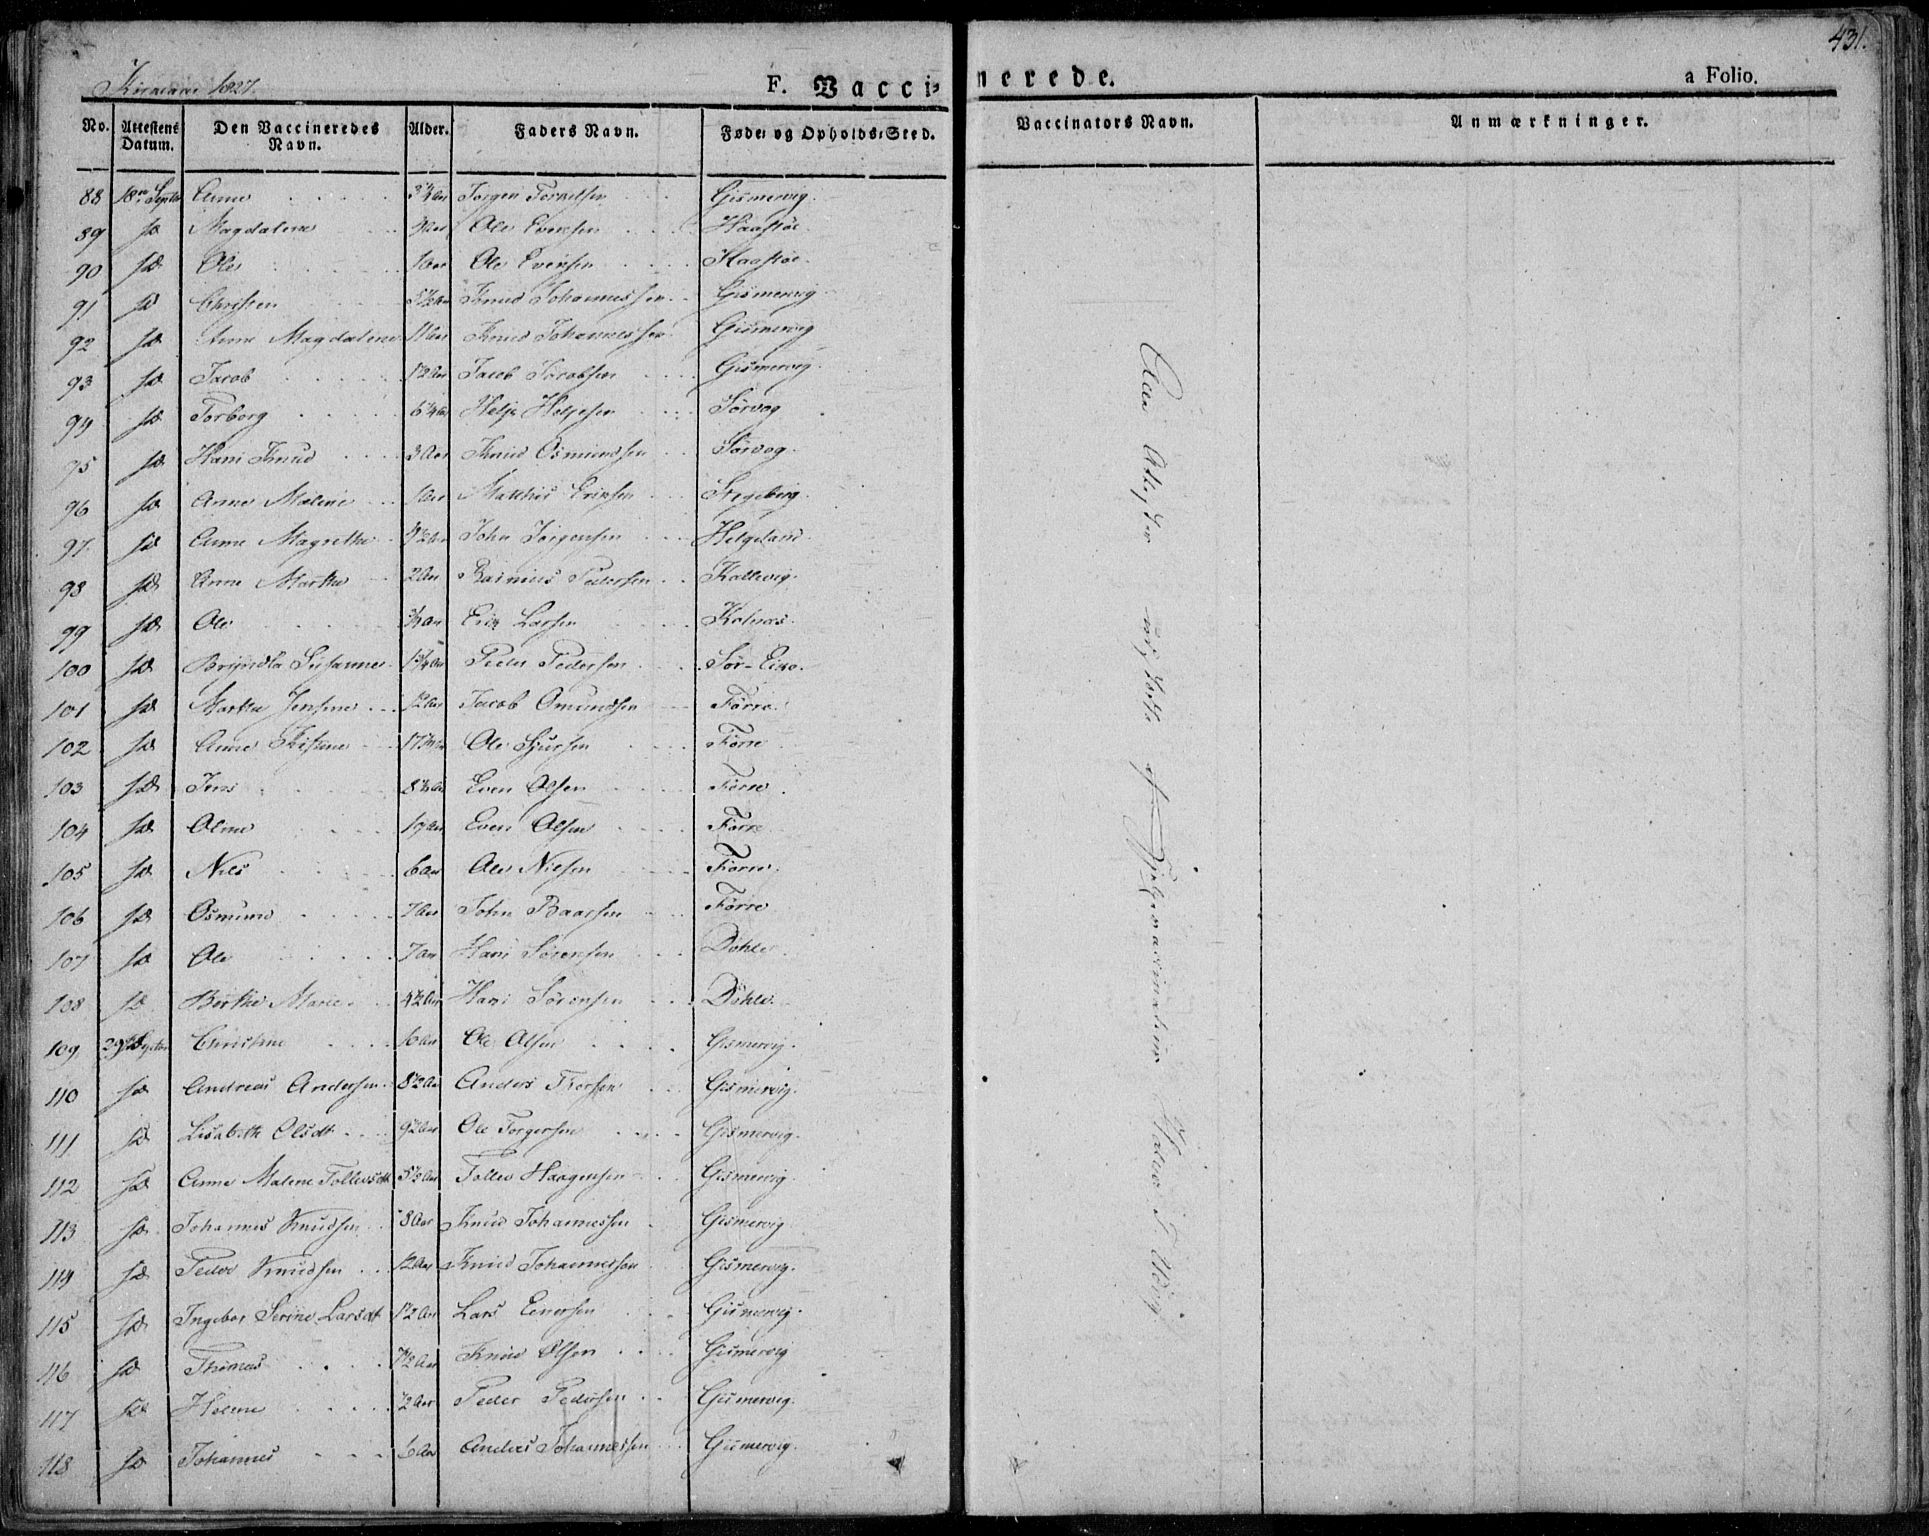 431.
Kirkeaar 1827.
F. Vaccinerede.
a Folio.
No. Attestens Datum. Den Vaccineredes Navn. Alder. Faders Navn. Føde- og Opholds-Sted. Vaccinators Navn. Anmærkninger.
88 18de Septbr Anne 3¼ Aar Jørgen Torkelsen Gismervig.
89 sd Magdalene Aar Ole Evensen Haastøe.
90 sd Ole 1 Aar Ole Evensen Haastøe.
91 sd Christen 5½ Aar Knud Johannessen Gismervig
92 sd Anne Magdalene 11 Aar Knud Johannessen Gismervig
93 sd Jacob ½ Aar Jacob Jacobsen Gismervig.
94 sd Torborg 6¼ Aar Helje Heljesen Sørvog
95 sd Hans Knud 3 Aar Knud Osmundsen Sørvog.
96 sd Anne Malene 1 Aar Matthis Eriksen Stegeberg.
97 sd Anne Magrethe Aar John Jørgensen Helgeland.
98 sd Anne Marthe 2 Aar Rasmus Pedersen Kallevig.
99 sd Ole Aar Erik Larsen Kolnæs.
100 sd Bryndla Susanne 1¾ Aar Peder Pedersen Sør-Eike.
101 sd Marthe Jensine ½ Aar Jacob Omundsen Førre.
102 sd Anne Kistine 17 Aar Ole Sjursen Førre
103 sd Jens 8½ Aar Even Olsen Førre.
104 sd Oline 19 Aar Even Olsen Førre
105 sd Nils 6 Aar Ole Nilsen Førre.
106 sd Osmund 7 Aar John Baarsen Førre
107 sd Ole 7 Aar Hans Sørensen Døhle
108 sd Berthe Marie 4½ Aar Hans Sørensen Døhle.
109 29de Septbr Christine 6 Aar Ole Olsen Gismervig.
110 sd Andreas Andersen 8½ Aar Anders Thorsen Gismervig.
111 sd Lisabeth Olsdt 9½ Aar Ole Torgersen Gismervig.
112 sd Anne Malene Tollevsdt 5½ Aar Tollev Haagensen Gismervig.
113 sd Johannes Knudsen 8 Aar Knud Johannessen Gismervig
114 sd Peder Knudsen ½ Aar Knud Johannessen Gismervig.
115 sd Ingebor Serine Larsdt 1½ Aar Lars Enersen Gismervig.
116 sd Thomas 7½ Aar Knud Olsen Gismervig
117 sd Helene ½ Aar Peder Pedersen Gismervig.
118 sd Johannes 6 Aar Anders Johannessen Gismervig.
Alle Attester udstedte af Hjelpvaccinateur